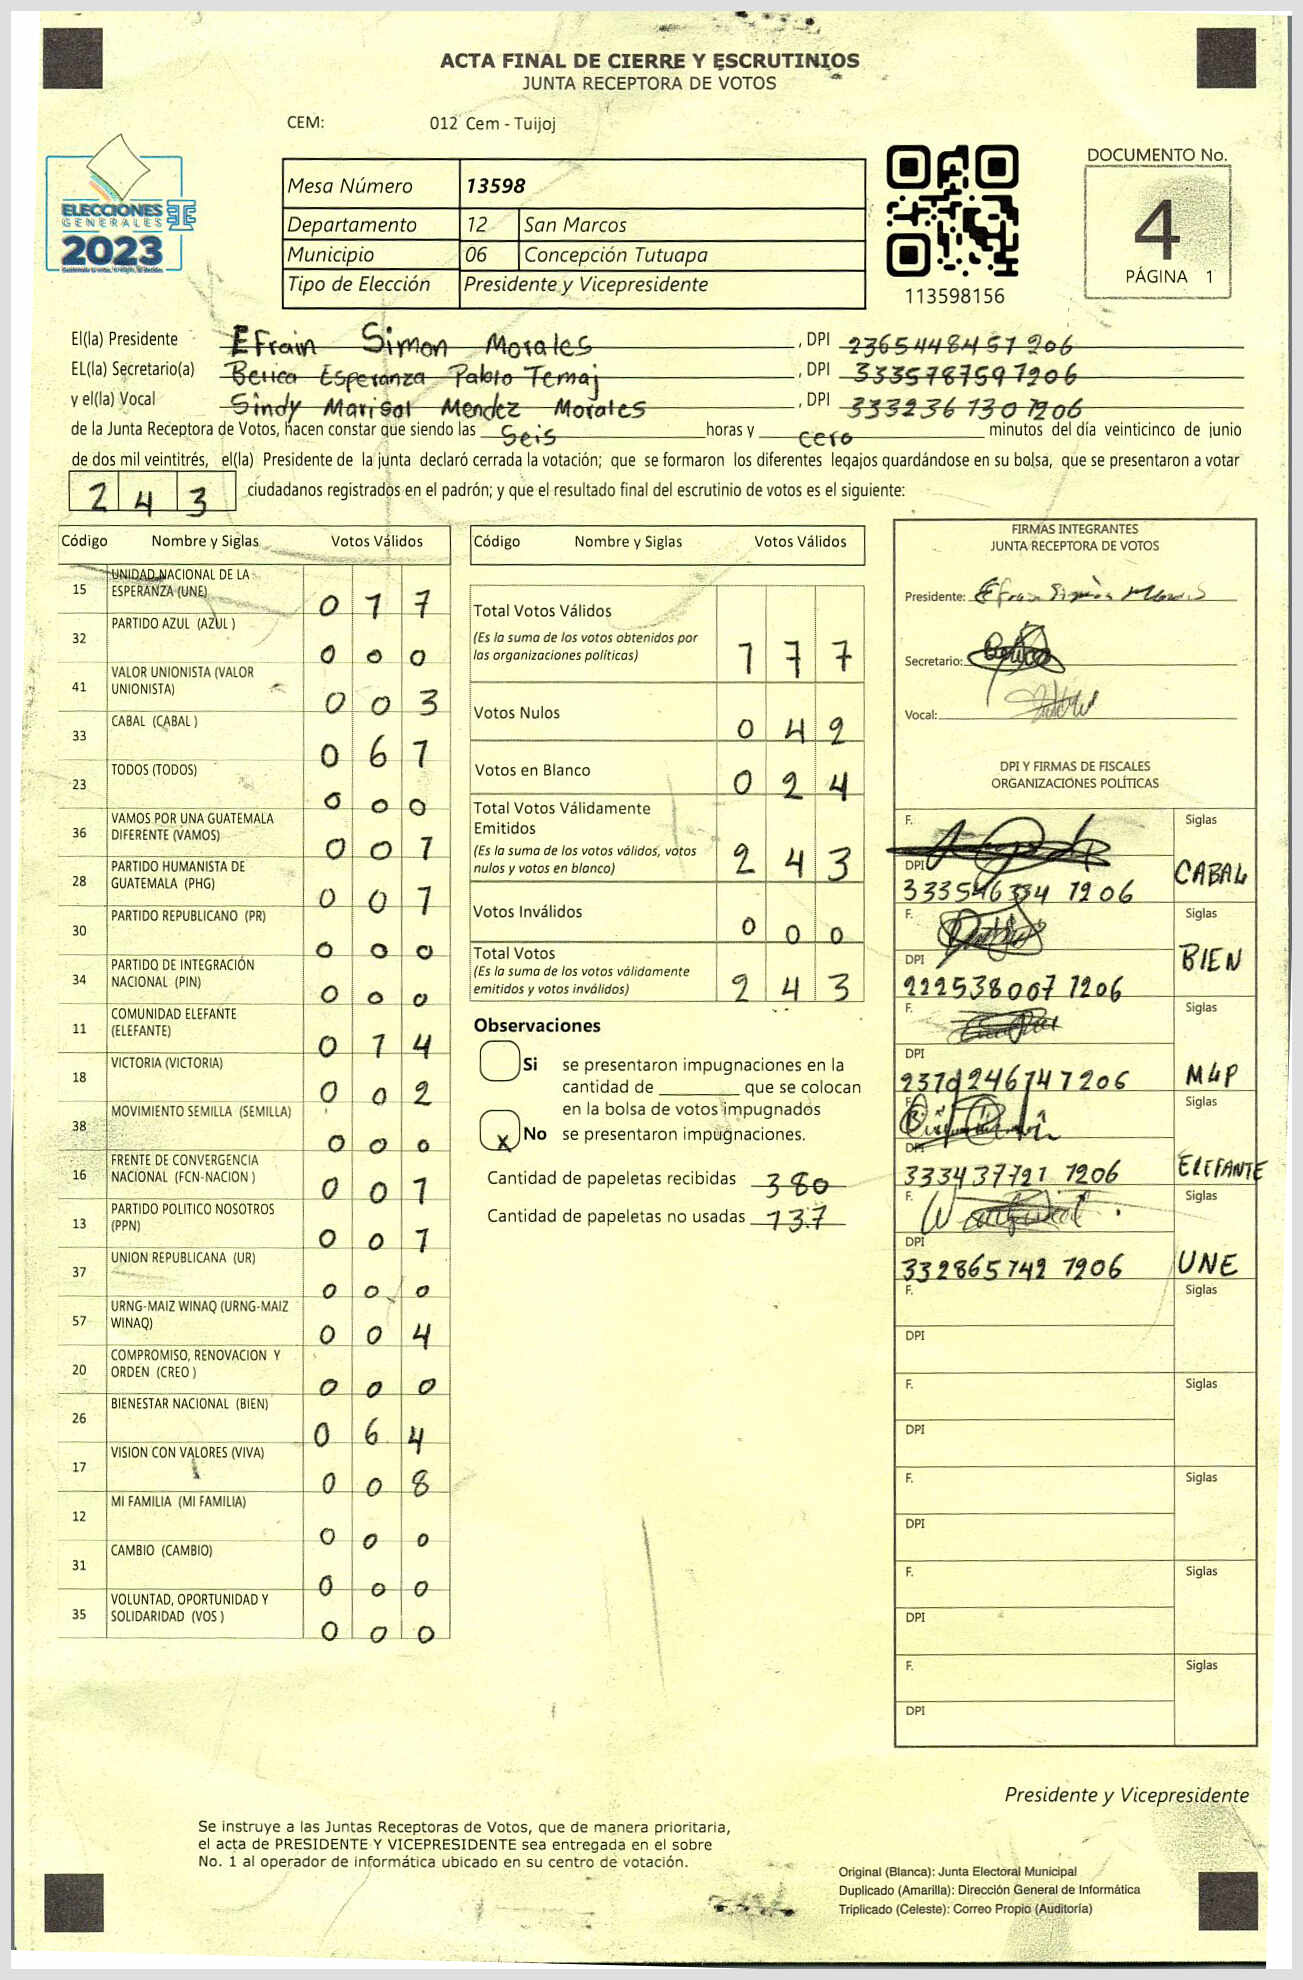 ACTA FINAL DE CIERRE Y ESCRUTINIOS
JUNTA RECEPTORA DE VOTOS
CEM: 012 Cem - Tuijoj
ELECCIONES
GENERALES
2023
Mesa Número 13598
Departamento 12 San Marcos
Municipio 06 Concepción Tutuapa
Tipo de Elección Presidente y Vicepresidente
113598156
DOCUMENTO No.
4
PÁGINA 1
El(la) Presidente Efrain Simon Morales , DPI 2365448451206
EL(la) Secretario(a) Berica Esperanza Pablo Temaj , DPI 3335787591206
y el(la) Vocal Sindy Marisol Mendez Morales , DPI 3332361301206
de la Junta Receptora de Votos, hacen constar que siendo las seis horas y cero minutos del día veinticinco de junio
de dos mil veintitrés, el(la) Presidente de la junta declaró cerrada la votación; que se formaron los diferentes legajos guardándose en su bolsa, que se presentaron a votar
243 ciudadanos registrados en el padrón; y que el resultado final del escrutinio de votos es el siguiente:
Código Nombre y Siglas Votos Válidos
15 UNIDAD NACIONAL DE LA ESPERANZA (UNE) 017
32 PARTIDO AZUL (AZUL ) 000
41 VALOR UNIONISTA (VALOR UNIONISTA) 003
33 CABAL (CABAL ) 061
23 TODOS (TODOS) 000
36 VAMOS POR UNA GUATEMALA DIFERENTE (VAMOS) 001
28 PARTIDO HUMANISTA DE GUATEMALA (PHG) 001
30 PARTIDO REPUBLICANO (PR) 000
34 PARTIDO DE INTEGRACIÓN NACIONAL (PIN) 000
11 COMUNIDAD ELEFANTE (ELEFANTE) 014
18 VICTORIA (VICTORIA) 002
38 MOVIMIENTO SEMILLA (SEMILLA) 000
16 FRENTE DE CONVERGENCIA NACIONAL (FCN-NACION ) 001
13 PARTIDO POLITICO NOSOTROS (PPN) 001
37 UNION REPUBLICANA (UR) 000
57 URNG-MAIZ WINAQ (URNG-MAIZ WINAQ) 004
20 COMPROMISO, RENOVACION Y ORDEN (CREO ) 000
26 BIENESTAR NACIONAL (BIEN) 064
17 VISION CON VALORES (VIVA) 008
12 MI FAMILIA (MI FAMILIA) 000
31 CAMBIO (CAMBIO) 000
35 VOLUNTAD, OPORTUNIDAD Y SOLIDARIDAD (VOS ) 000
Código Nombre y Siglas Votos Válidos
Total Votos Válidos
(Es la suma de los votos obtenidos por
las organizaciones políticas) 177
Votos Nulos 042
Votos en Blanco 024
Total Votos Válidamente
Emitidos
(Es la suma de los votos válidos, votos
nulos y votos en blanco) 243
Votos Inválidos 000
Total Votos
(Es la suma de los votos válidamente
emitidos y votos inválidos) 243
Observaciones
Si se presentaron impugnaciones en la
cantidad de ________ que se colocan
en la bolsa de votos impugnados
x No se presentaron impugnaciones.
Cantidad de papeletas recibidas 380
Cantidad de papeletas no usadas 137
FIRMAS INTEGRANTES
JUNTA RECEPTORA DE VOTOS
Presidente: Efrain Simón Morales
Secretario:
Vocal:
DPI Y FIRMAS DE FISCALES
ORGANIZACIONES POLÍTICAS
F. Siglas
DPI CABAL
333546334 1206
F. Siglas
DPI BIEN
222538007 1206
F. Siglas
DPI M4P
F. Siglas
DPI ELEFANTE
333437721 1206
F. Siglas
DPI UNE
332865142 1206
F. Siglas
DPI
F. Siglas
DPI
F. Siglas
DPI
F. Siglas
DPI
F. Siglas
DPI
Presidente y Vicepresidente
Se instruye a las Juntas Receptoras de Votos, que de manera prioritaria,
el acta de PRESIDENTE Y VICEPRESIDENTE sea entregada en el sobre
No. 1 al operador de informática ubicado en su centro de votación.
Original (Blanca): Junta Electoral Municipal
Duplicado (Amarilla): Dirección General de Informática
Triplicado (Celeste): Correo Propio (Auditoría)